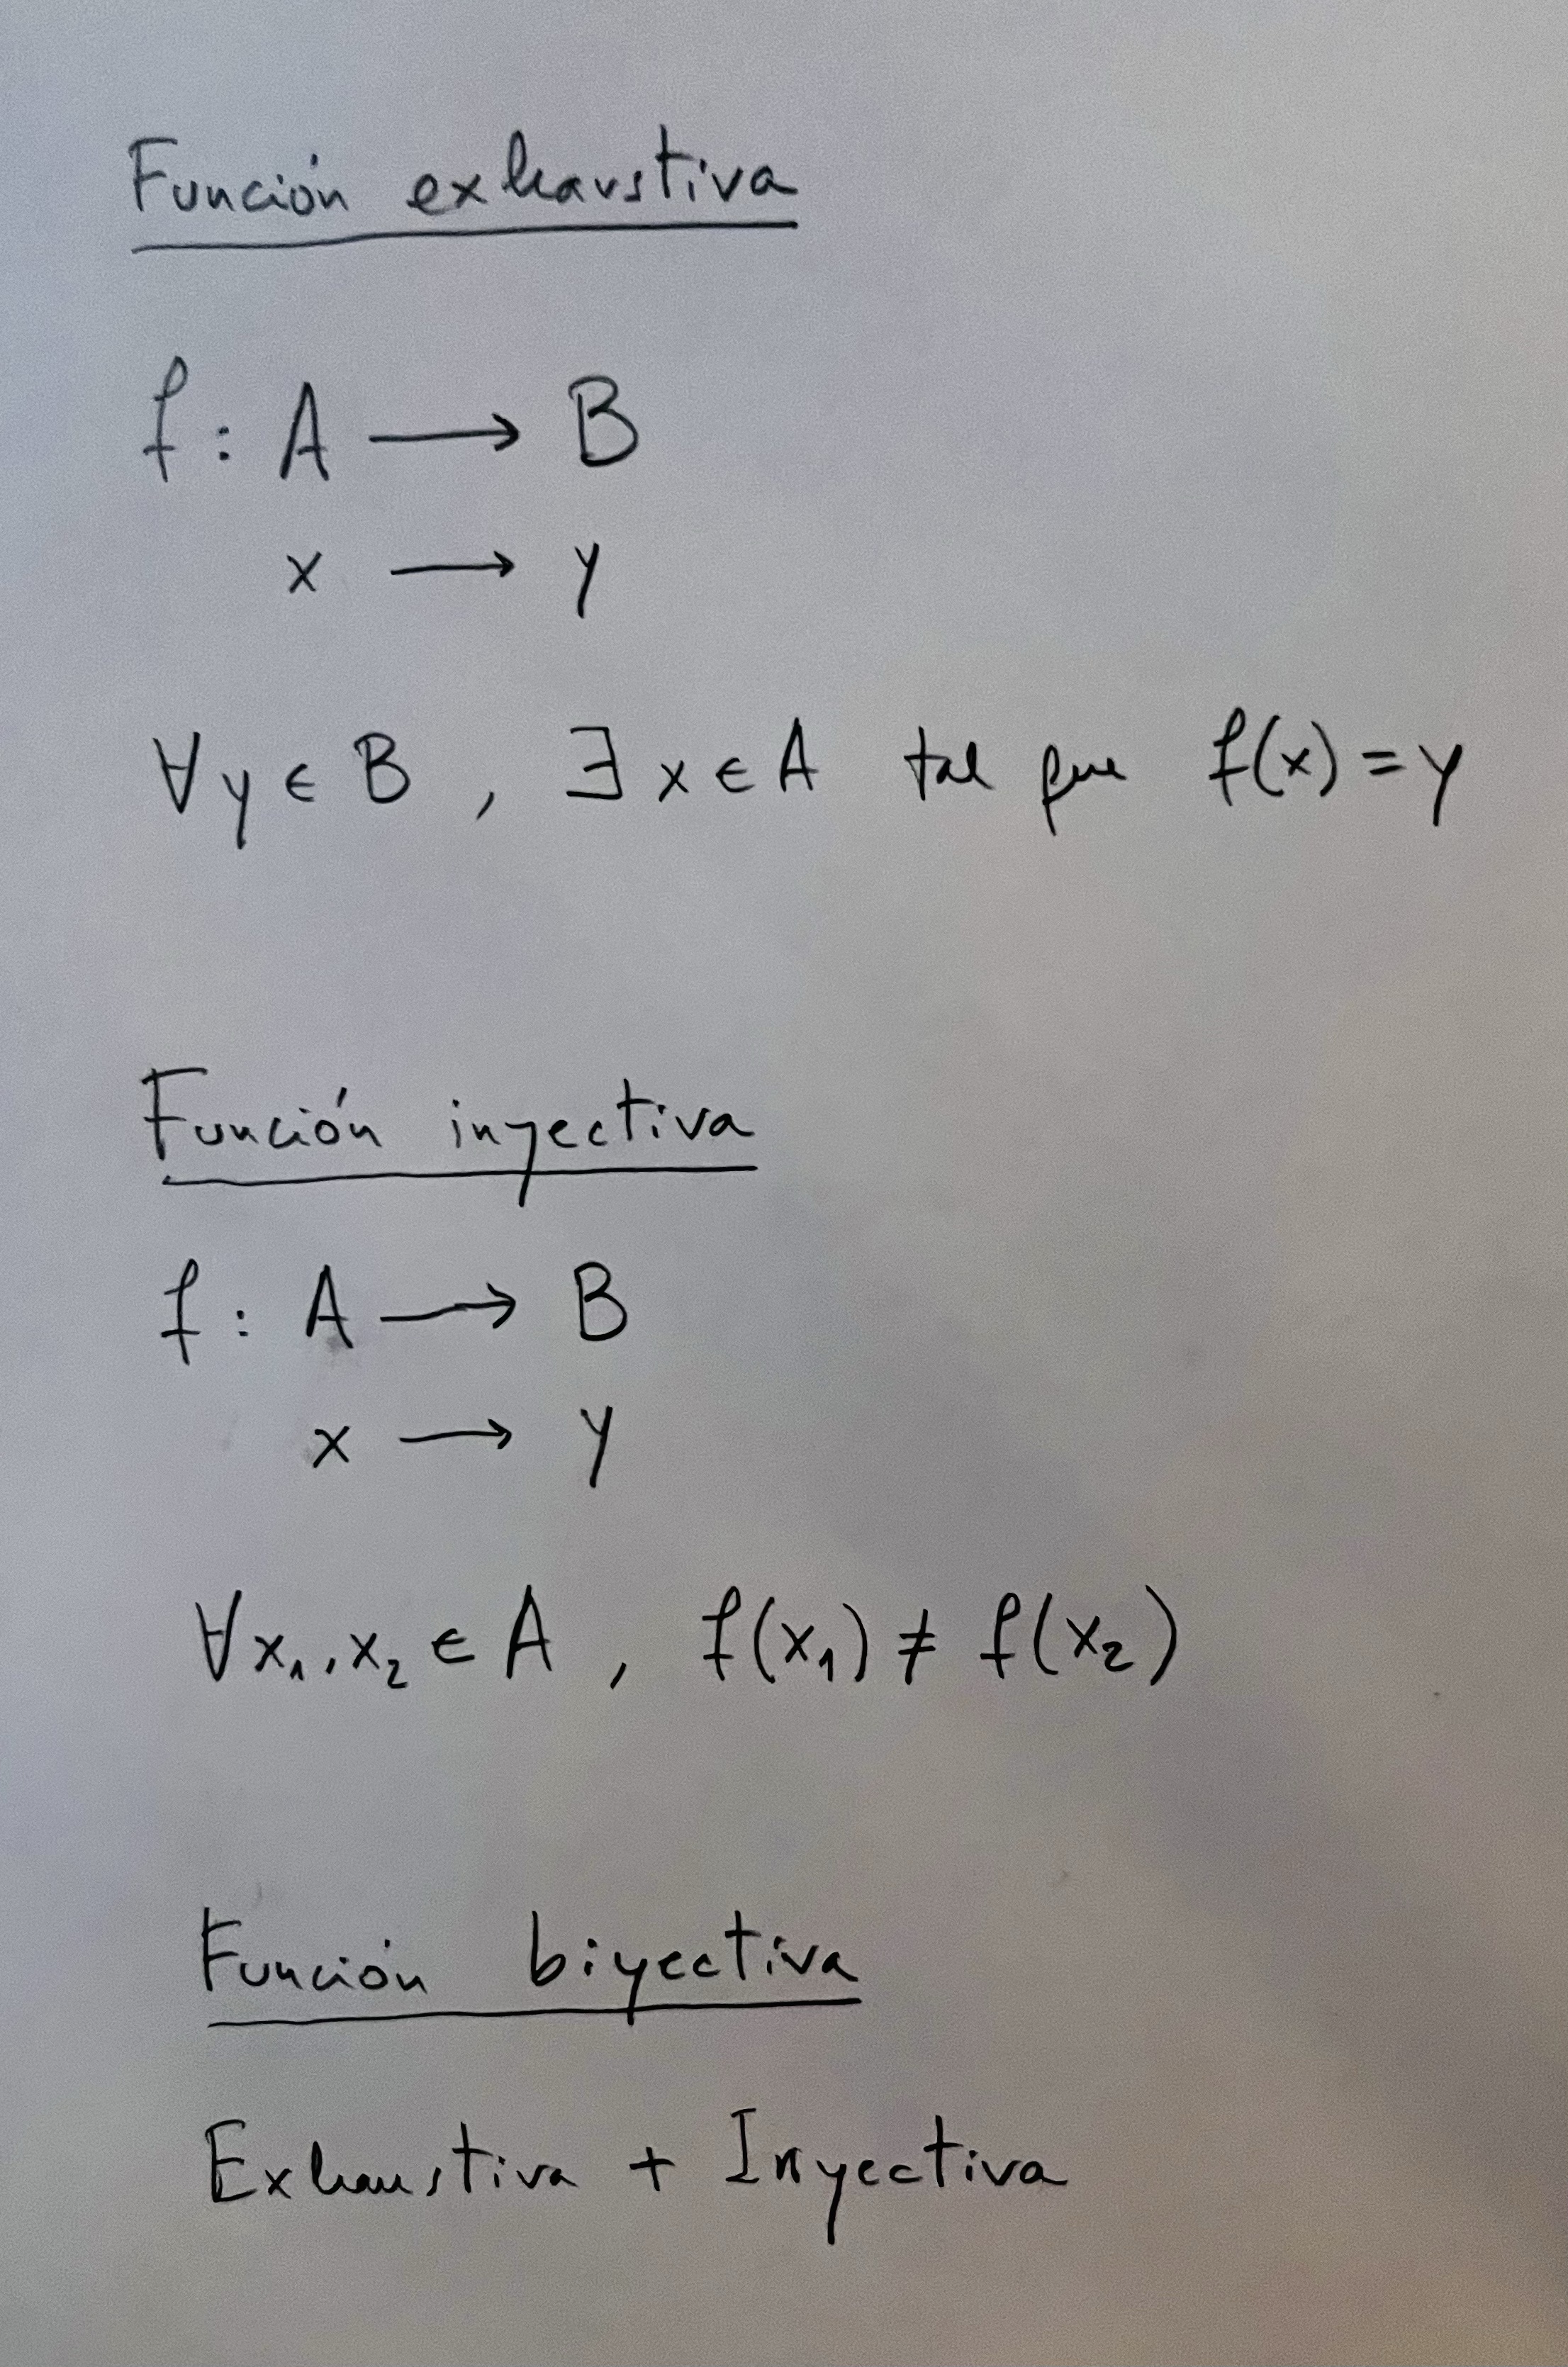 Función exhaustiva
f : A ⟶ B
x ⟶ y
∀ y ∈ B , ∃ x ∈ A tal que f(x) = y
Función inyectiva
f : A ⟶ B
x ⟶ y
∀ x₁, x₂ ∈ A , f(x₁) ≠ f(x₂)
Función biyectiva
Exhaustiva + Inyectiva